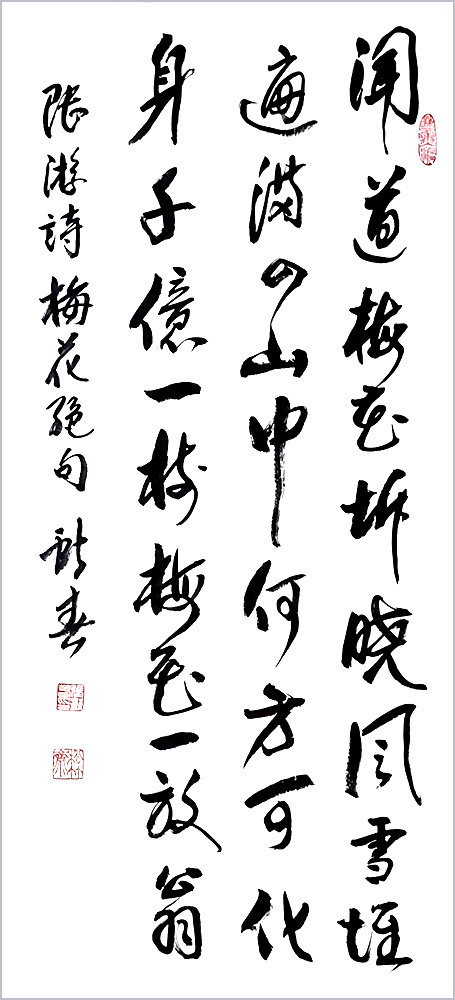 聞道梅花坼曉風雪堆
遍滿四山中何方可化
身千億一樹梅花一放翁
陸游詩梅花絕句 春